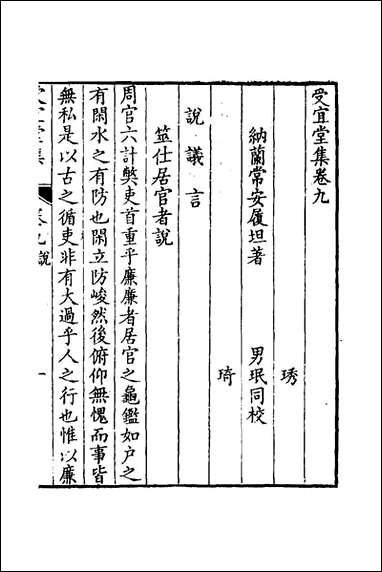 受宜堂集卷九
琇
納蘭常安履坦著 男珉同校
琦
說議言
筮仕居官者說
周官六計弊吏首重乎廉廉者居官之龜鑑如户之
有閑水之有防也閑立防峻然後俯仰無愧而事皆
無私是以古之循吏非有大過乎人之行也惟以廉
受宜堂集 卷九說 一